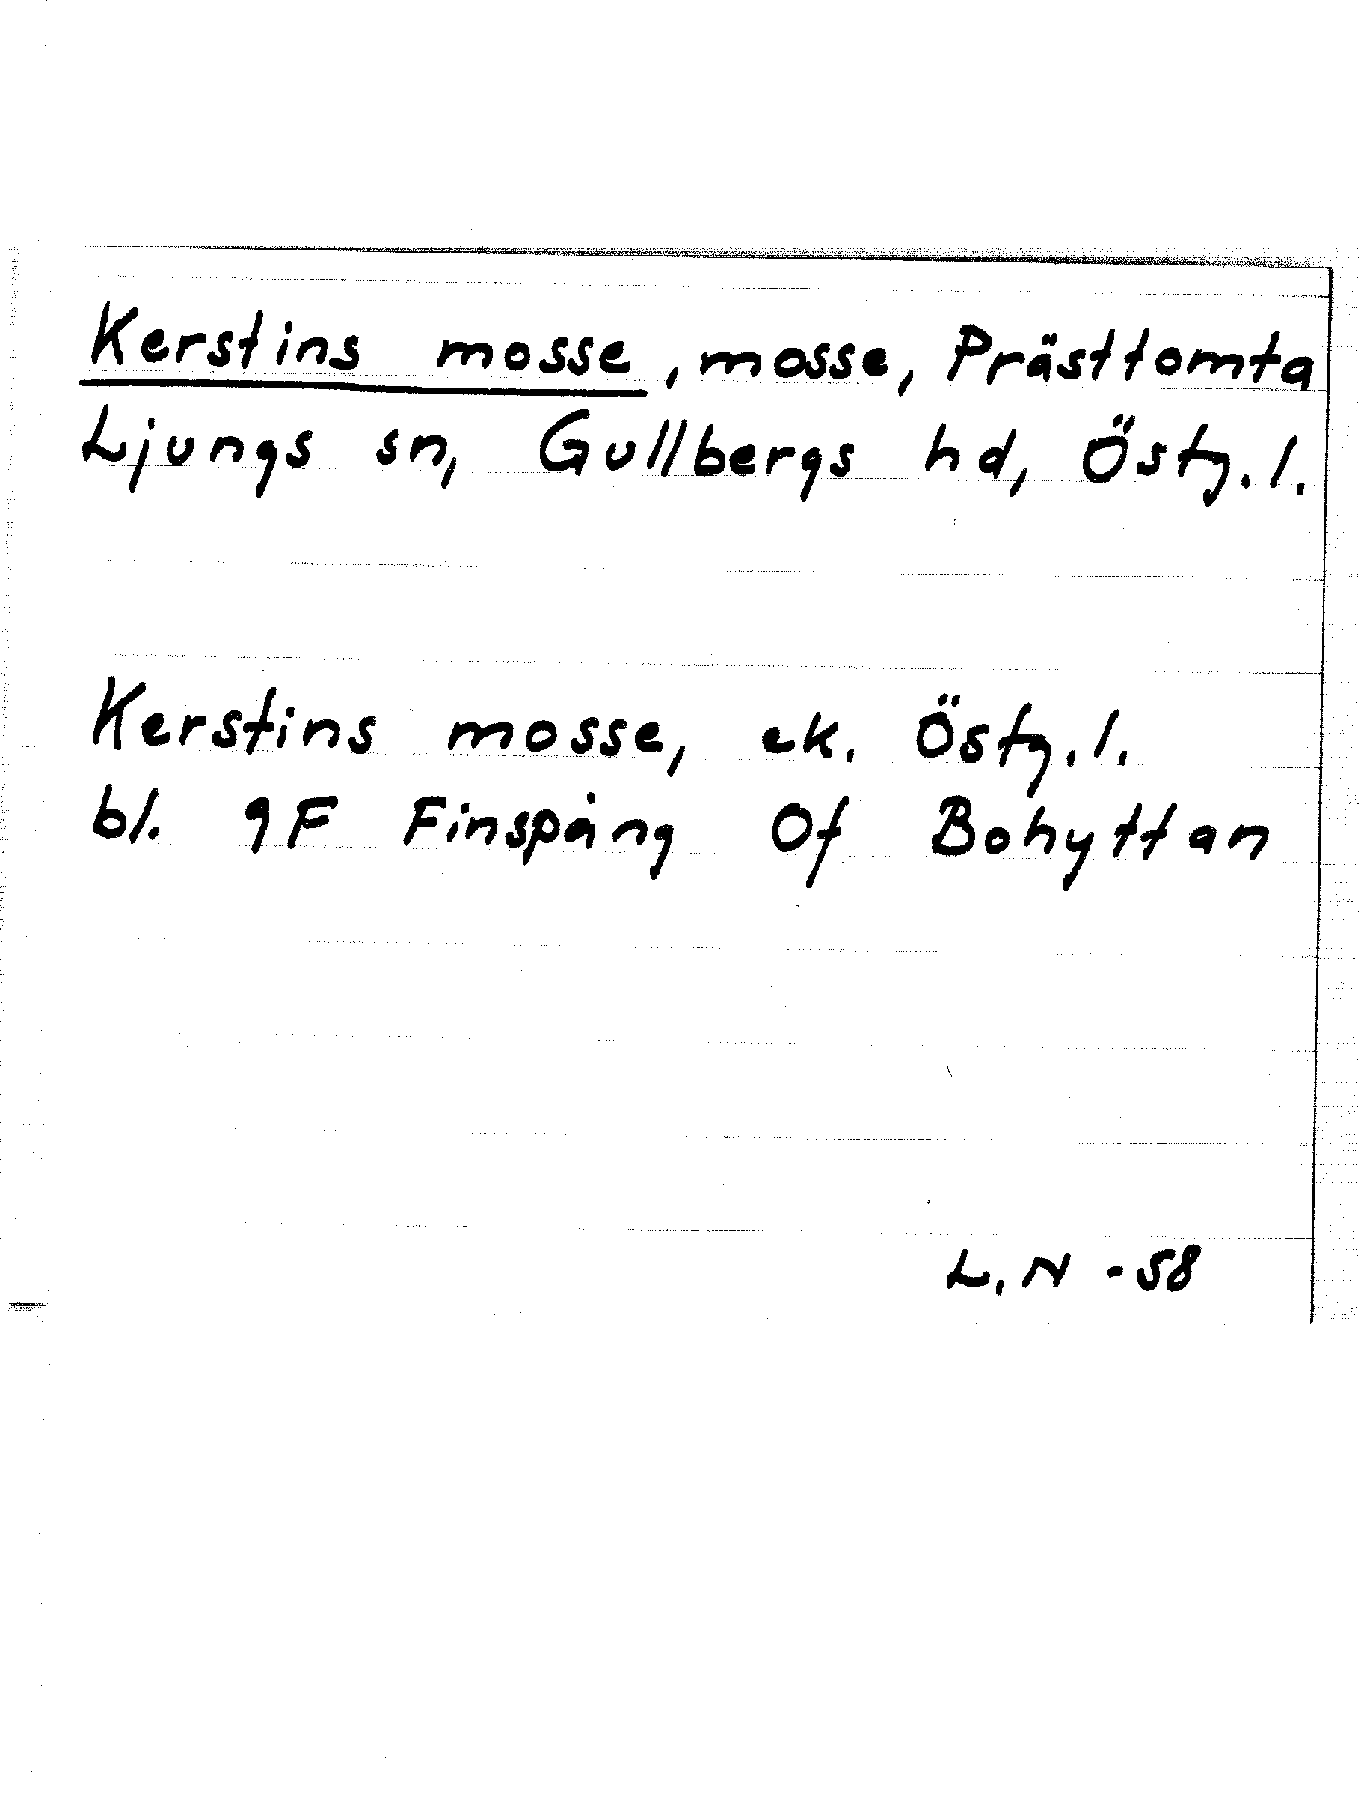 Kerstins mosse, mosse, Prästtomta
Ljungs sn, Gullbergs hd, Östg.l.
Kerstins mosse, ek. Östg.l.
bl. 9F Finspång Of Bohyttan
L.N -58